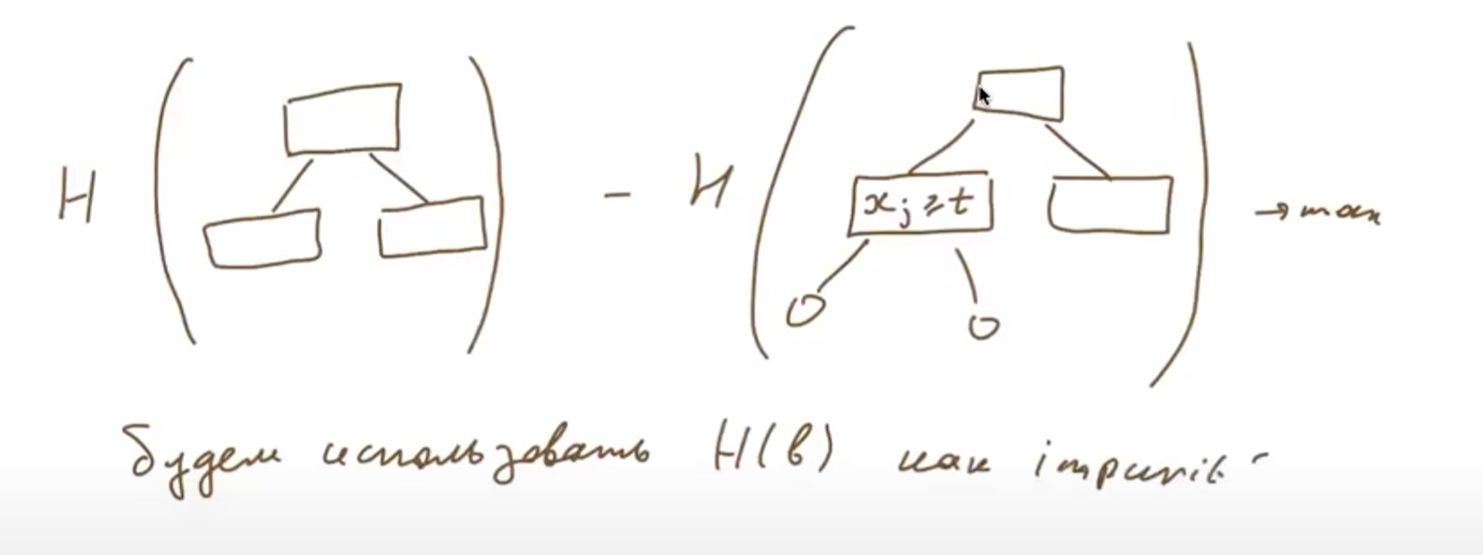 H ( ) - H ( x_j ≥ t ) → max
будем использовать H(b) как impurit